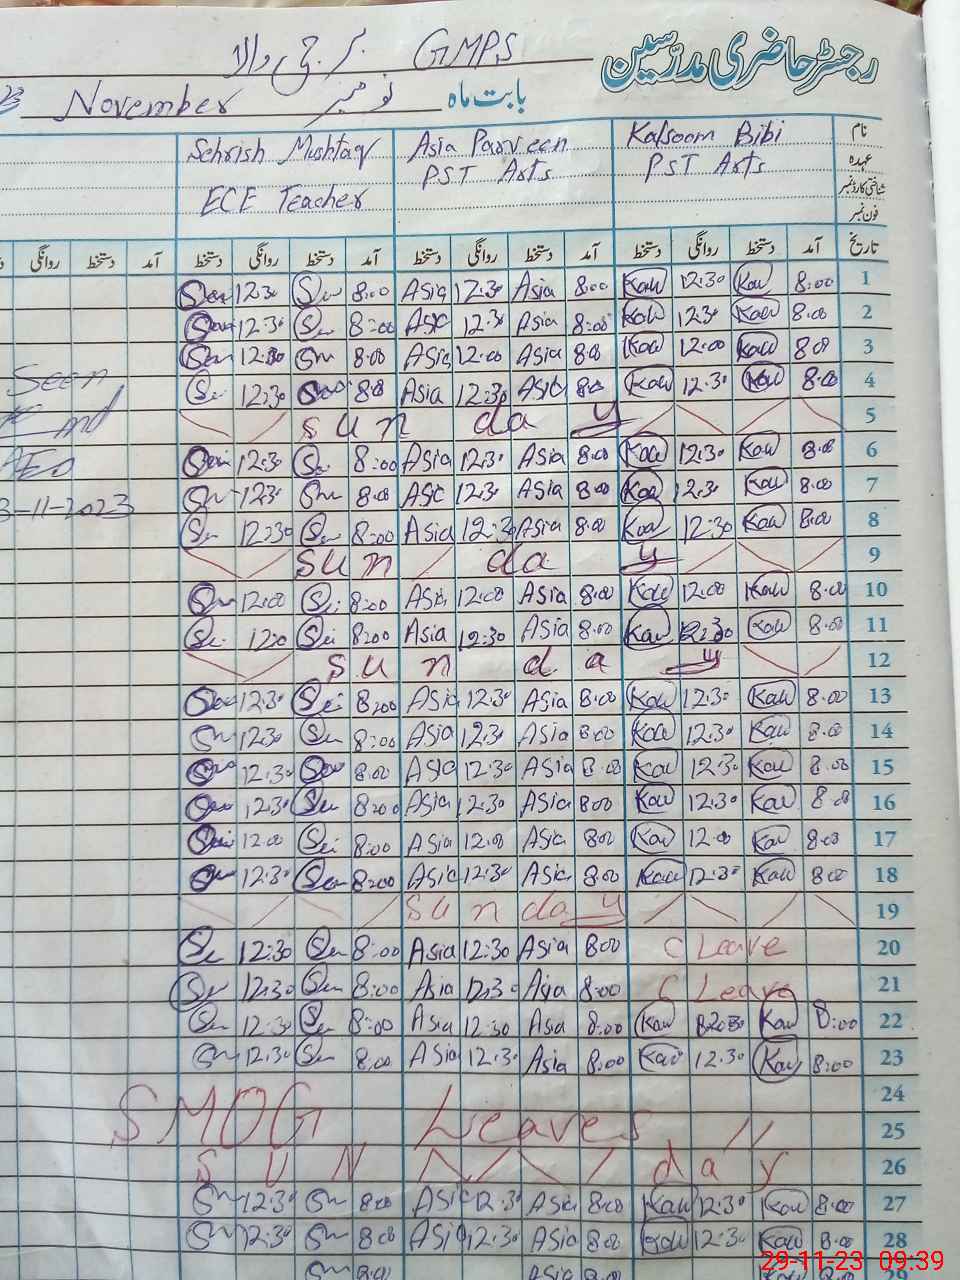 رجسٹر حاضری مدرسین
GMPS
بابت ماہ نومبر November
نام Kalsoom Bibi Asia Parveen Sehrish Mushtaq
عہدہ PST Arts PST Arts ECE Teacher
شناختی کارڈ نمبر
فون نمبر
تاریخ آمد دستخط روانگی دستخط آمد دستخط روانگی دستخط آمد دستخط روانگی دستخط آمد دستخط روانگی
1 8:00 Kau 12:30 Kau 8:00 Asia 12:30 Asia 8:00 12:30
2 8:00 Kau 12:30 Kau 8:00 Asia 12:30 8:00 12:30
3 8:00 Kau 12:00 Kau 8:00 Asia 12:00 Asia 8:00 12:30
4 8:00 Kau 12:30 Kau 8:00 Asia 12:30 Asia 8:00 12:30
5 Sunday
6 8:00 Kau 12:30 Kau 8:00 Asia 12:30 Asia 8:00 12:30
7 8:00 Kau 12:30 Kau 8:00 Asia 12:30 8:00 12:30
8 8:00 Kau 12:30 Kau 8:00 Asia 12:30 Asia 8:00 12:30
9 Sunday
10 8:00 Kau 12:00 Kau 8:00 Asia 12:00 Asia 8:00 12:00
11 8:00 Kau 12:30 Kau 8:00 Asia 12:30 Asia 8:00
12 Sunday
13 8:00 Kau 12:30 Kau 8:00 Asia 12:30 Asia 8:00 12:30
14 8:00 Kau 12:30 Kau 8:00 Asia 12:30 Asia 8:00 12:30
15 8:00 Kau 12:30 Kau 8:00 Asia 12:30 Asia 8:00 12:30
16 8:00 Kau 12:30 Kau 8:00 Asia 12:30 Asia 8:00 12:30
17 8:00 Kau 12:00 Kau 8:00 Asia 12:00 Asia 8:00 12:00
18 8:00 Kau 12:30 Kau 8:00 Asia 12:30 Asia 8:00 12:30
19 Sunday
20 C Leave 8:00 Asia 12:30 Asia 8:00 12:30
21 C Leave 8:00 Asia 12:30 Asia 8:00 12:30
22 8:00 Kau 12:30 Kau 8:00 Asia 12:30 Asia 8:00 12:30
23 8:00 Kau 12:30 Kau 8:00 Asia 12:30 Asia 8:00 12:30
24
25 SMOG Leaves
26 SUN day
27 8:00 Kau 12:30 Kau 8:00 Asia 12:30 Asia 8:00 12:30
28 8:00 Kau 12:30 Kau 8:00 Asia 12:30 Asia 8:00 12:30
29 8:00 Kau 8:00 Asia 8:00
Seen
AEO
-11-2023
29-11-23 09:39